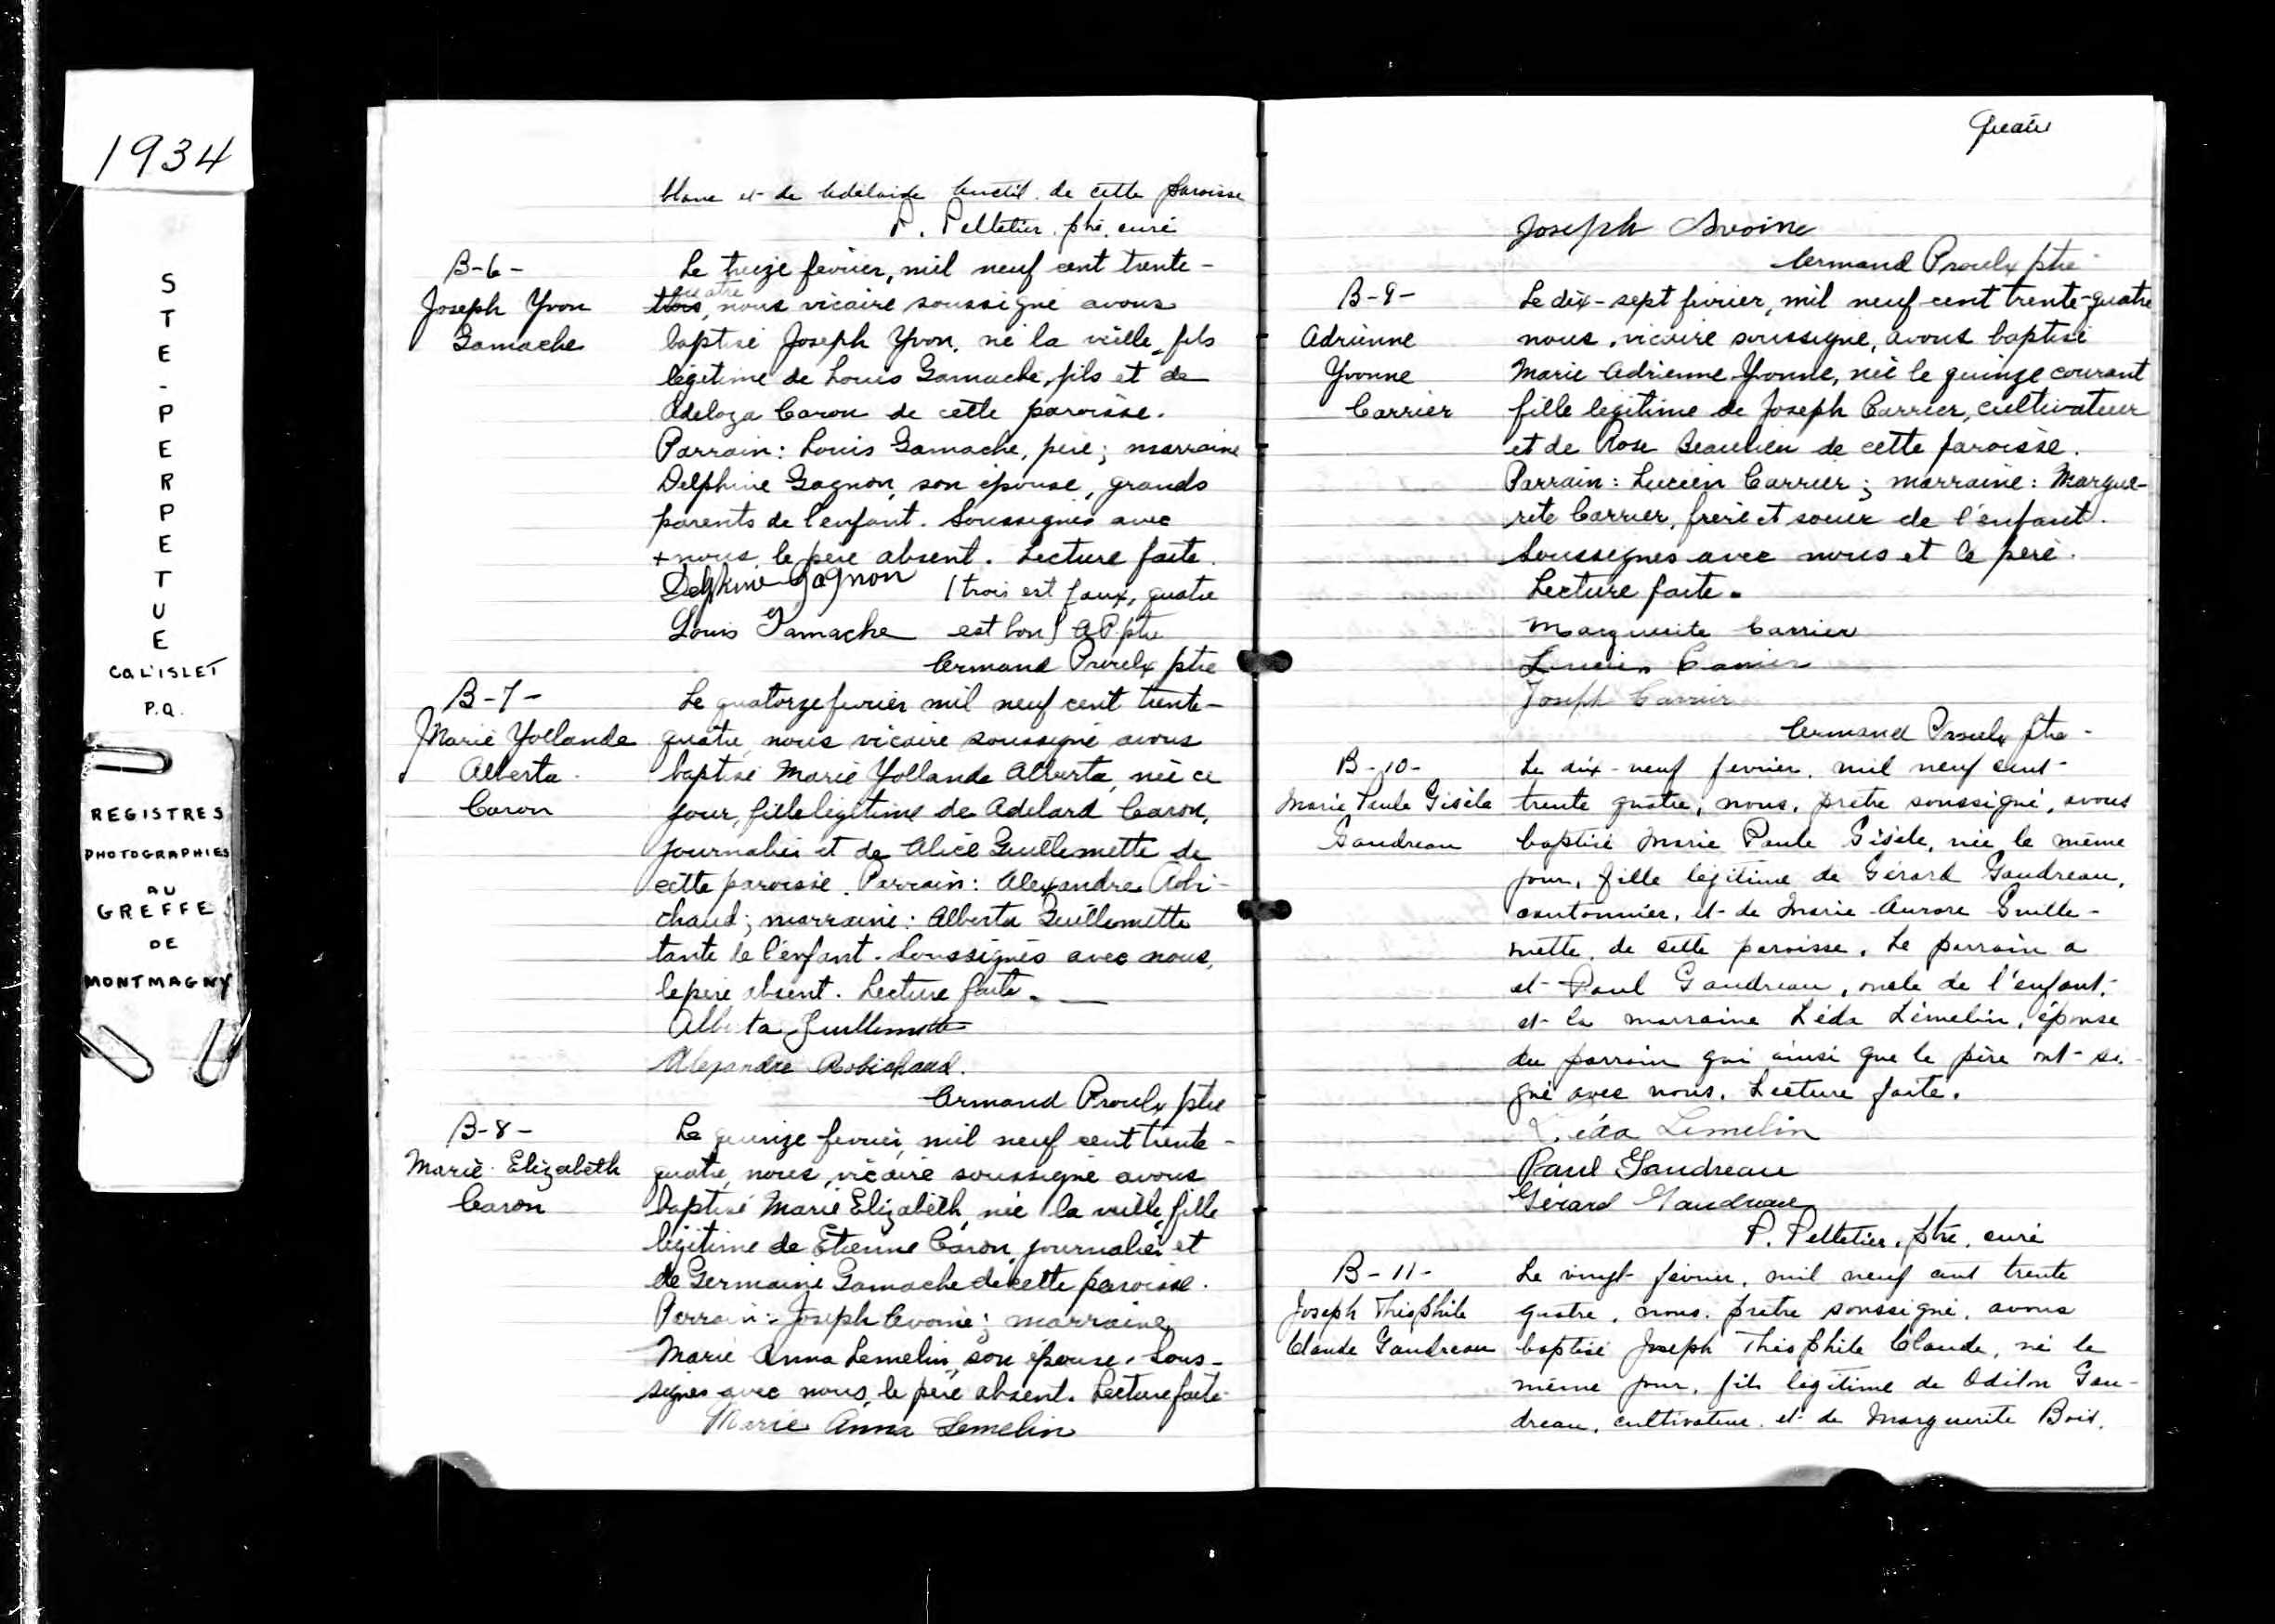 1934
STE-PERPETUE
CO L'ISLET
P.Q.
REGISTRES
PHOTOGRAPHIES
AU
GREFFE
DE
MONTMAGNY
et de Adélaide de cette paroisse
P. Pelletier, ptre, curé
B-6-
Joseph Yvon
Gamache
Le treize février, mil neuf cent trente-
quatre
trois, nous vicaire soussigné avons
baptisé Joseph Yvon, né la veille, fils
légitime de Louis Gamache, fils et de
Adeloza Caron de cette paroisse.
Parrain: Louis Gamache, père; marraine
Delphine Gagnon, son épouse, grands
parents de l'enfant. Soussignés avec
+ nous, le père absent. Lecture faite.
Delphine Gagnon (trois est faux, quatre
Louis Gamache est bon) A P ptre
Armand Proulx ptre
B-7-
Marie Yollande
Alberta
Caron
Le quatorze février mil neuf cent trente-
quatre, nous vicaire soussigné avons
baptisé Marie Yollande Alberta, née ce
jour, fille légitime de Adelard Caron,
journalier et de Alice Guillemette de
cette paroisse. Parrain: Alexandre Robi-
chaud; marraine: Alberta Guillemette
tante de l'enfant. Soussignés avec nous,
le père absent. Lecture faite.
Alberta Guillemette
Alexandre Robichaud.
Armand Proulx ptre
B-8-
Marie Elizabeth
Caron
Le quinze février, mil neuf cent trente-
quatre, nous, vicaire soussigné avons
baptisé Marie Elizabeth, née la veille, fille
légitime de Etienne Caron, journalier et
de Germaine Gamache de cette paroisse.
Parrain: Joseph Avoine; marraine
Marie Anna Lemelin, son épouse. Sous-
signés avec nous, le père absent. Lecture faite.
Marie Anna Lemelin
Quatre
Joseph Avoine
Armand Proulx ptre
B-9-
Adrienne
Yvonne
Carrier
Le dix-sept février, mil neuf cent trente-quatre
nous, vicaire soussigné, avons baptisé
Marie Adrienne Yvonne, née le quinze courant
fille légitime de Joseph Carrier, cultivateur
et de Rose Beaulieu de cette paroisse.
Parrain: Lucien Carrier; marraine: Margue-
rite Carrier, frère et soeur de l'enfant.
Soussignés avec nous et le père.
Lecture faite.
Marguerite Carrier
Lucien Carrier
Joseph Carrier
Armand Proulx ptre
B-10-
Marie Paule Gisèle
Gaudreau
Le dix-neuf février, mil neuf cent
trente quatre, nous, prêtre soussigné, avons
baptisé Marie Paule Gisèle, née le même
jour, fille légitime de Gérard Gaudreau,
cantonnier, et de Marie-Aurore Guille-
mette, de cette paroisse. Le parrain a
et Paul Gaudreau, oncle de l'enfant,
et la marraine Léda Lemelin, épouse
du parrain qui ainsi que le père ont si-
gné avec nous. Lecture faite.
Léda Lemelin
Paul Gaudreau
Gérard Gaudreau
P. Pelletier, ptre, curé
B-11-
Joseph Théophile
Claude Gaudreau
Le vingt février, mil neuf cent trente
quatre, nous, prêtre soussigné, avons
baptisé Joseph Théophile Claude, né le
même jour, fils légitime de Odilon Gau-
dreau, cultivateur, et de Marguerite Bois,